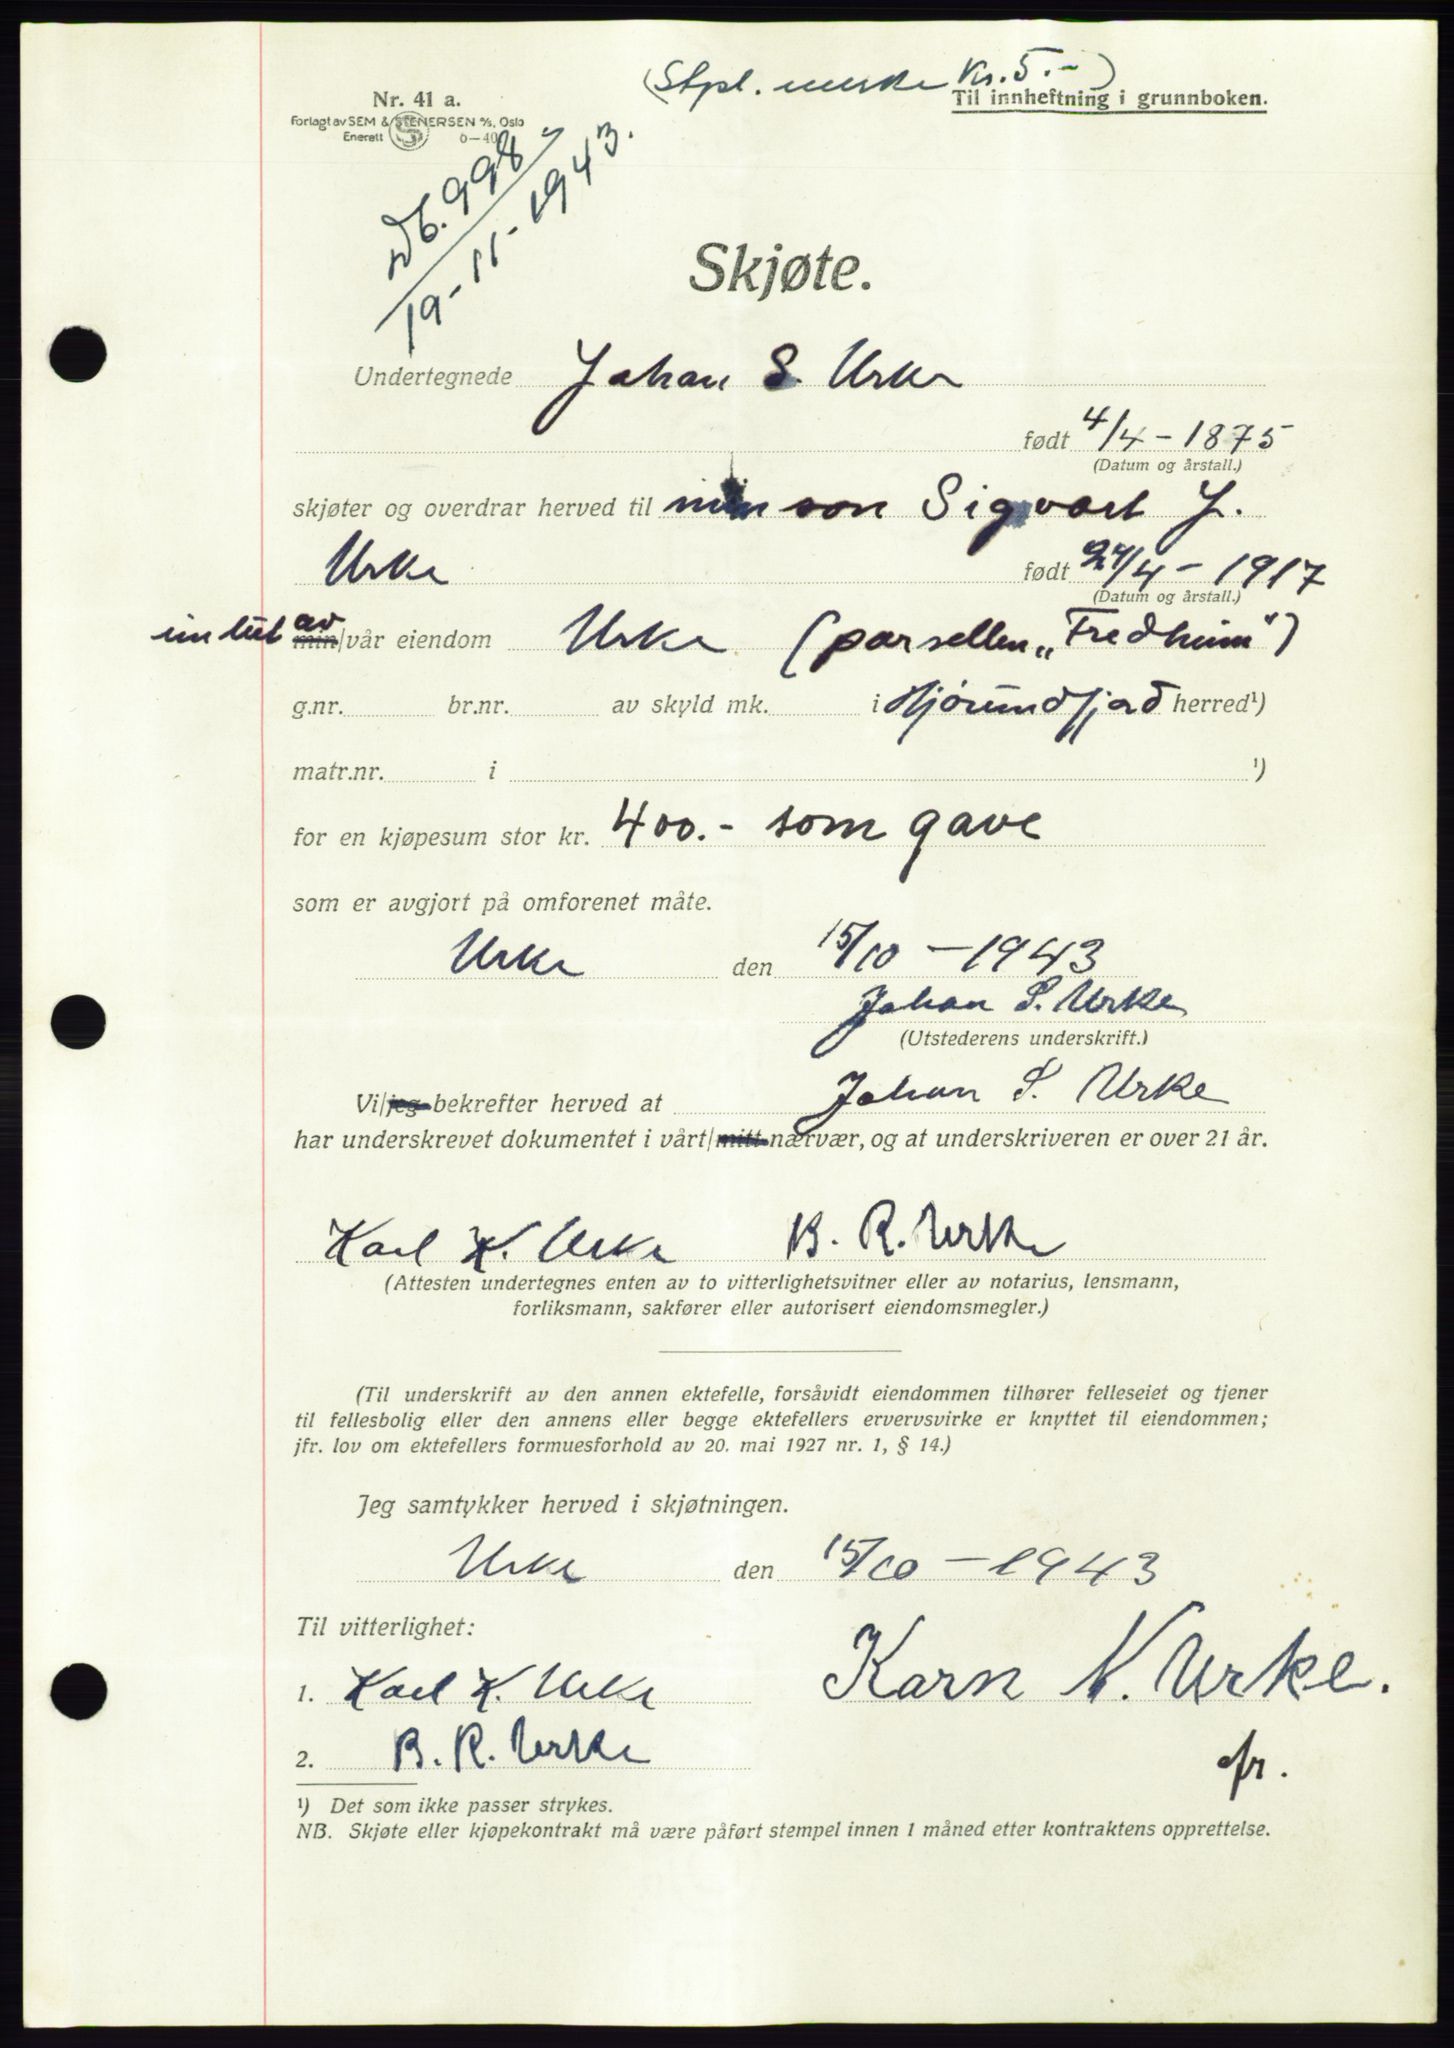 (Stpl. merke Kr. 5.-)
Nr. 41 a.
Til innheftning i grunnboken.
Forlagt av SEM & STENERSEN A/S, Oslo
Enerett 6-40
Db. 998
19-11-1943.
Skjøte.
Undertegnede Johan S. Urke
født 4/4-1875
(Datum og årstall.)
skjøter og overdrar herved til min son Sigvart J.
Urke født 24/4-1917
(Datum og årstall.)
ein lut av min/vår eiendom Urke (parsellen „Fredheim")
g.nr. br.nr. av skyld mk. i Hjørundfjord herred¹)
matr.nr. i ¹)
for en kjøpesum stor kr. 400.- som gave
som er avgjort på omforenet måte.
Urke den 15/10-1943
Johan S. Urke
(Utstederens underskrift.)
Vi/jeg bekrefter herved at Johan S. Urke
har underskrevet dokumentet i vårt/mitt nærvær, og at underskriveren er over 21 år.
Karl K. Urke B. R. Urke
(Attesten undertegnes enten av to vitterlighetsvitner eller av notarius, lensmann,
forliksmann, sakfører eller autorisert eiendomsmegler.)
(Til underskrift av den annen ektefelle, forsåvidt eiendommen tilhører felleseiet og tjener
til fellesbolig eller den annens eller begge ektefellers ervervsvirke er knyttet til eiendommen;
jfr. lov om ektefellers formuesforhold av 20. mai 1927 nr. 1, § 14.)
Jeg samtykker herved i skjøtningen.
Urke den 15/10-1943
Til vitterlighet:
1. Karl K. Urke Karn K. Urke.
2. B. R. Urke
¹) Det som ikke passer strykes.
NB. Skjøte eller kjøpekontrakt må være påført stempel innen 1 måned etter kontraktens opprettelse.